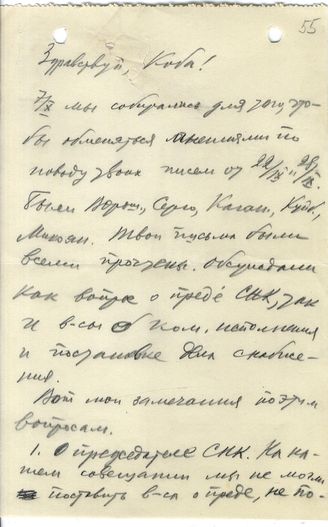 55
Здравствуй, Коба!
7/X мы собирались для того, что-
бы обменяться мнениями по
поводу твоих писем от 22/IX и 28/IX.
Были Ворош., Серго, Каган., Куйб.,
Микоян. Твои письма были
всеми прочтены. Обсуждали
как вопрос о преде СНК, так
и в-сы о ком. исполнения
и постановке дела снабже-
ния.
Вот мои замечания по этим
вопросам.
1. О председателе СНК. На на-
шем совещании мы не могли
поставить в-са о преде, не по-